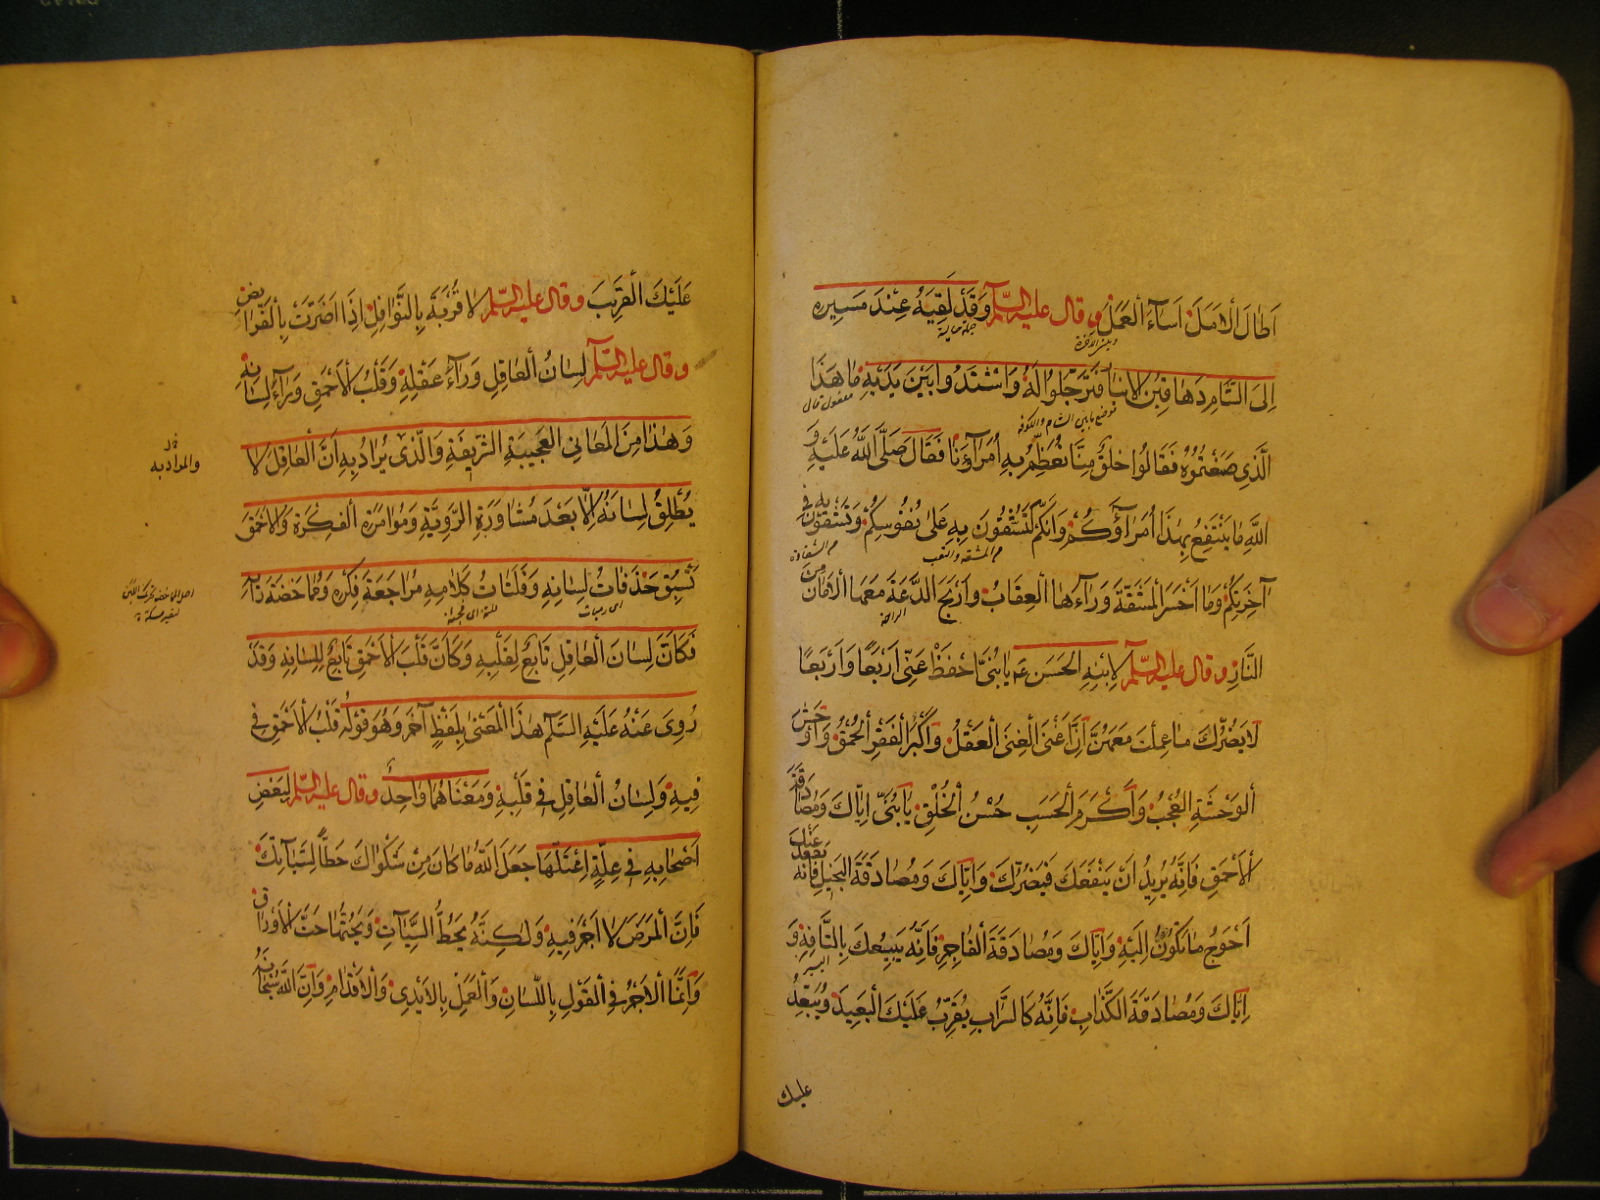 اَطَالَ الْاَمَلَ اَسَآءَ الْعَمَلَ وقال عليه السّلم وَقَدْ لَقِيَهُ عِنْدَ مَسِيرِهِ
جملة حالية
اِلَى الشَّامِ دَهَاقِينُ الْاَنْبَارِ فَتَرَجَّلُوا لَهُ وَاشْتَدُّوا بَيْنَ يَدَيْهِ مَا هٰذَا
مفعول قال
موضع مابين الشام والكوفة
الَّذِي صَنَعْتُمُوُهُ فَقَالُوا خُلُقٌ مِنَّا نُعَظِّمُ بِهِ اُمَرَآءَنَا فَقَالَ صَلَّى اللّٰهُ عَلَيْهِ وَ
اللّٰهِ مَا يَنْتَفِعُ بِهٰذَا اُمَرَآؤُكُمْ وَاِنَّكُمْ لَتَشُقُّونَ بِهِ عَلَى نُفُوسِكُمْ وَتَشْقَوْنَ بِهِ فِي
من المشقه والتعب
من الشقاوة
آخِرَتِكُمْ وَمَا اَخْسَرَ الْمَشَقَّةَ وَرَآءَهَا الْعِقَابُ وَاَرْبَحَ الدَّعَةَ مَعَهَا الْاَمَانُ مِنَ
الراحة
النَّارِ وقال عليه السّلم لِابْنِهِ الْحَسَنِ عم يَا بُنَيَّ احْفَظْ عَنِّي اَرْبَعًا وَاَرْبَعًا
لَا يَضُرُّكَ مَا عَمِلْتَ مَعَهُنَّ اِنَّ اَغْنَى الْغِنَى الْعَقْلُ وَاَكْبَرَ الْفَقْرِ الْحُمْقُ وَاَوْحَشَ
الْوَحْشَةِ الْعُجْبُ وَاَكْرَمَ الْحَسَبِ حُسْنُ الْخُلْقِ يَا بُنَيَّ اِيَّاكَ وَمُصَادَقَةَ
الْاَحْمَقِ فَاِنَّهُ يُرِيدُ اَنْ يَنْفَعَكَ فَيَضُرُّكَ وَاِيَّاكَ وَمُصَادَقَةَ الْبَخِيلِ فَاِنَّهُ يَقْعُدُ عَنْكَ
اَحْوَجَ مَا تَكُونُ اِلَيْهِ وَاِيَّاكَ وَمُصَادَقَةَ الْفَاجِرِ فَاِنَّهُ يَبِيعُكَ بِالتَّافِهِ وَ
اليسير
اِيَّاكَ وَمُصَادَقَةَ الْكَذَّابِ فَاِنَّهُ كَالسَّرَابِ يُقَرِّبُ عَلَيْكَ الْبَعِيدَ وَيُبَعِّدُ
عليك
عَلَيْكَ الْقَرِيبَ وقال عليه السّلم لَا قُرْبَةَ بِالنَّوَافِلِ اِذَا اَضَرَّتْ بِالْفَرَائِضِ
وقال عليه السّلم لِسَانُ الْعَاقِلِ وَرَآءَ عَقْلِهِ وَقَلْبُ الْاَحْمَقِ وَرَآءَ لِسَانِهِ
وَهٰذَا مِنَ الْمَعَانِي الْعَجِيبَةِ الشَّرِيفَةِ وَالَّذِي يُرَادُ بِهِ اَنَّ الْعَاقِلَ لَا
والمراد به
يُطْلِقُ لِسَانَهُ اِلَّا بَعْدَ مُشَاوَرَةِ الرَّوِيَّةِ وَمُؤَامَرَةِ الْفِكْرَةِ وَالْاَحْمَقَ
تَسْبِقُ حَذَفَاتُ لِسَانِهِ وَفَلَتَاتُ كَلَامِهِ مُرَاجَعَةَ فِكْرِهِ وَمُمَاخَضَةَ رَاْيِهِ
فَكَاَنَّ لِسَانَ الْعَاقِلِ تَابِعٌ لِقَلْبِهِ وَكَاَنَّ قَلْبَ الْاَحْمَقِ تَابِعٌ لِلِسَانِهِ وَقَدْ
رُوِيَ عَنْهُ عَلَيْهِ السَّلٰم هٰذَا الْمَعْنَى بِلَفْظٍ آخَرَ وَهُوَ قَوْلُهُ قَلْبُ الْاَحْمَقِ فِي
فِيهِ وَلِسَانُ الْعَاقِلِ فِي قَلْبِهِ وَمَعْنَاهُمَا وَاحِدٌ وقال عليه السّلم لِبَعْضِ
اَصْحَابِهِ فِي عِلَّةٍ اِعْتَلَّهَا جَعَلَ اللّٰهُ مَا كَانَ مِنْ شَكْوَاكَ حَطًّا لِسَيِّآتِكَ
فَاِنَّ الْمَرَضَ لَا اَجْرَ فِيهِ وَلٰكِنَّهُ يَحُطُّ السَّيِّآتِ وَيَحُتُّهَا حَتَّ الْاَوْرَاقِ
وَاِنَّمَا الْاَجْرُ فِي الْقَوْلِ بِاللِّسَانِ وَالْعَمَلِ بِالْاَيْدِي وَالْاَقْدَامِ وَاِنَّ اللّٰهَ سُبْحَانَهُ